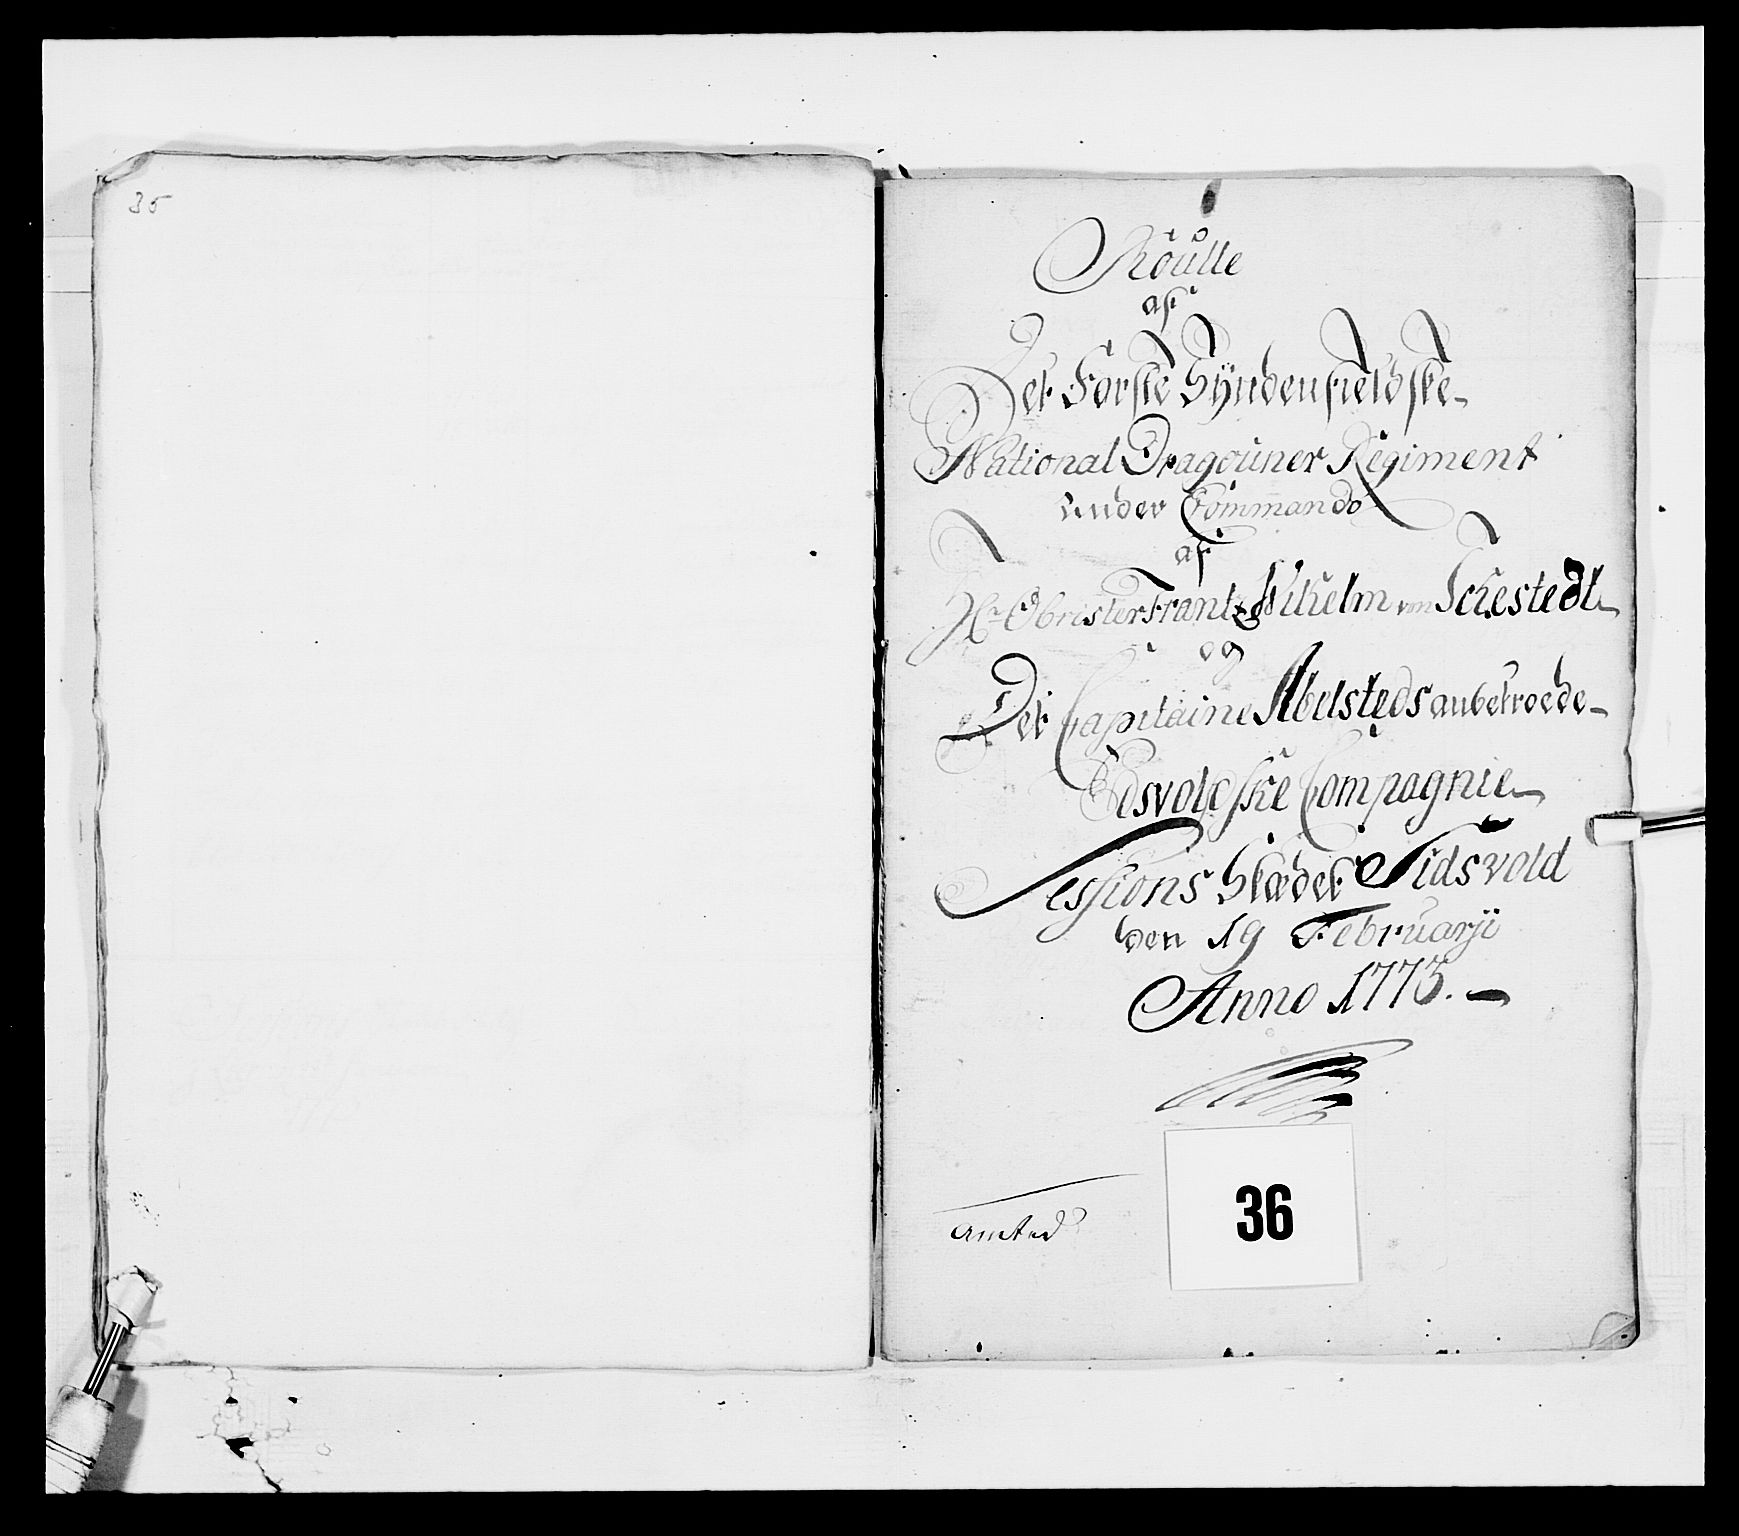 35
Roulle
af
Det Første Syndenfieldske
National Dragouner Regiment
under Commando
af
Hr Obrister Frantz Wilhelm von Sehestedt
og
Det Capitaine Abelsteds anbetroede
Edsvoldske Compagnie
Sessions Stædet Eidsvold
den 19 Februarji
Anno 1773.
36